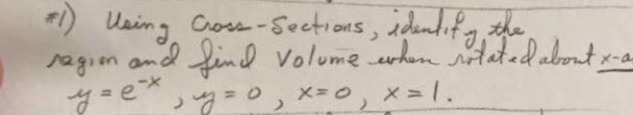 #1) Using Cross-Sections, identify the
region and find Volume when rotated about x-a
y = e^-x, y = 0, x = 0, x = 1.